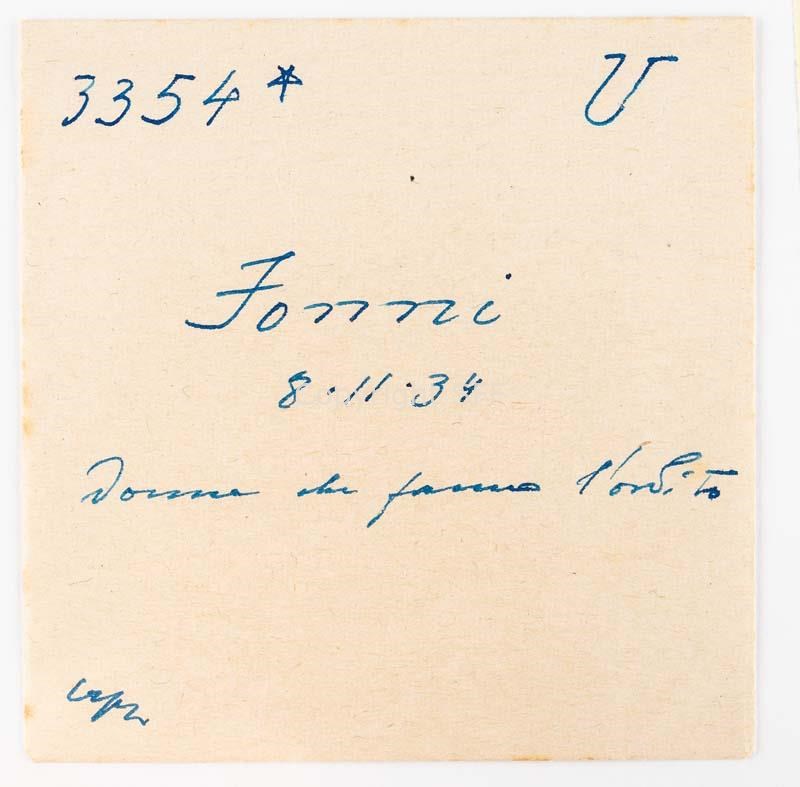 3354* U
Fonni
8·11·34
Donne che fanno l'ordito